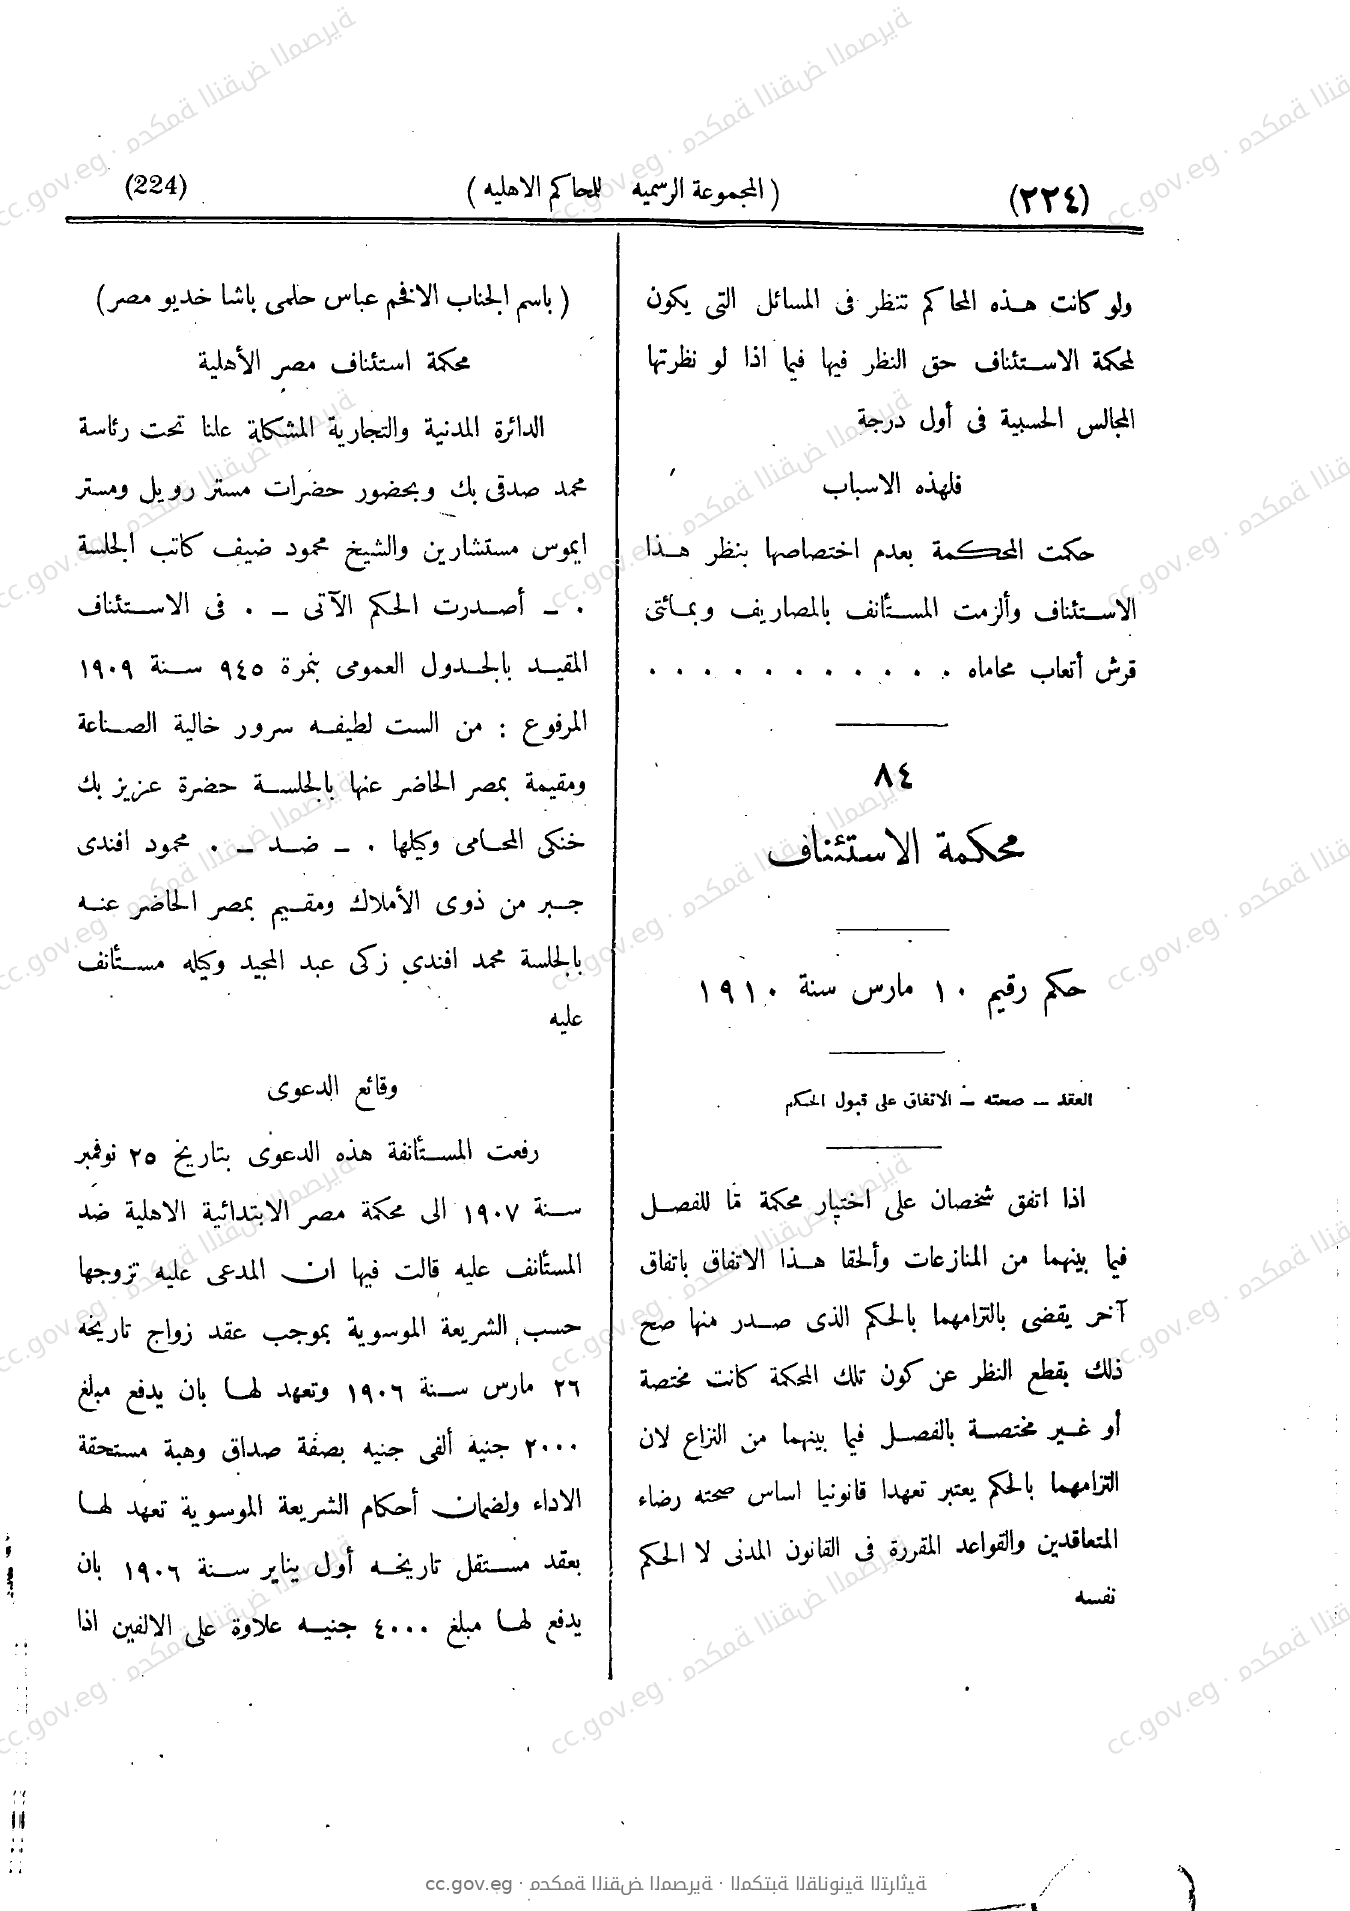 (٢٢٤) ( المجموعة الرسميه للمحاكم الاهليه ) (224)
ولو كانت هذه المحاكم تنظر فى المسائل التى يكون
لمحكمة الاستئناف حق النظر فيها فيما اذا لو نظرتها
المجالس الحسبية فى أول درجة
فلهذه الاسباب
حكمت المحكمة بعدم اختصاصها بنظر هذا
الاستئناف وألزمت المستأنف بالمصاريف وبمائتى
قرش أتعاب محاماه . . . . . . . . . . .
٨٤
محكمة الاستئناف
حكم رقيم ١٠ مارس سنة ١٩١٠
العقد – صحته – الاتفاق على قبول الحكم
اذا اتفق شخصان على اختيار محكمة ما للفصل
فيما بينهما من المنازعات وألحقا هذا الاتفاق باتفاق
آخر يقضى بالتزامهما بالحكم الذى صدر منها صح
ذلك بقطع النظر عن كون تلك المحكمة كانت مختصة
أو غير مختصة بالفصل فيما بينهما من النزاع لان
التزامهما بالحكم يعتبر تعهدا قانونيا اساس صحته رضاء
المتعاقدين والقواعد المقررة فى القانون المدنى لا الحكم
نفسه
( باسم الجناب الافخم عباس حلمى باشا خديو مصر )
محكمة استئناف مصر الأهلية
الدائرة المدنية والتجارية المشكلة علنا تحت رئاسة
محمد صدقى بك وبحضور حضرات مستر رويل ومستر
ايموس مستشارين والشيخ محمود ضيف كاتب الجلسة
. – أصدرت الحكم الآتى – . فى الاستئناف
المقيد بالجدول العمومى بنمرة ٩٤٥ سنة ١٩٠٩
المرفوع : من الست لطيفه سرور خالية الصناعة
ومقيمة بمصر الحاضر عنها بالجلسة حضرة عزيز بك
خنكى المحامى وكيلها . – ضد – . محمود افندى
جبر من ذوى الأملاك ومقيم بمصر الحاضر عنه
بالجلسة محمد افندى زكى عبد المجيد وكيله مستأنف
عليه
وقائع الدعوى
رفعت المستأنفة هذه الدعوى بتاريخ ٢٥ نوفمبر
سنة ١٩٠٧ الى محكمة مصر الابتدائية الاهلية ضد
المستأنف عليه قالت فيها ان المدعى عليه تزوجها
حسب الشريعة الموسوية بموجب عقد زواج تاريخه
٢٦ مارس سنة ١٩٠٦ وتعهد لها بان يدفع مبلغ
٢٠٠٠ جنيه ألفى جنيه بصفة صداق وهبة مستحقة
الاداء ولضمان أحكام الشريعة الموسوية تعهد لها
بعقد مستقل تاريخه أول يناير سنة ١٩٠٦ بان
يدفع لها مبلغ ٤٠٠٠ جنيه علاوة على الالفين اذا
cc.gov.eg · محكمة النقض المصرية · المكتبة القانونية التراثية